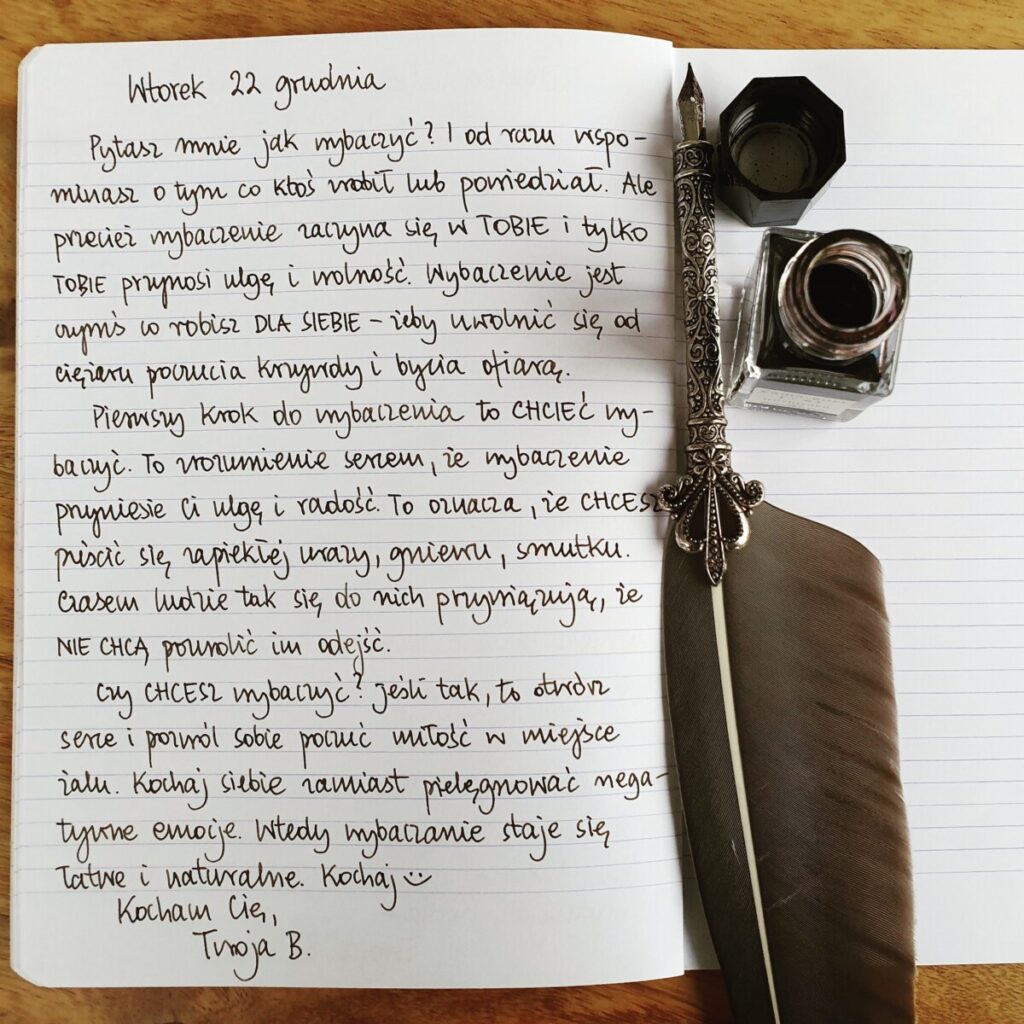 Wtorek 22 grudnia
Pytasz mnie jak wybaczyć? I od razu wspo-
minasz o tym co ktoś zrobił lub powiedział. Ale
przecież wybaczenie zaczyna się w TOBIE i tylko
TOBIE przynosi ulgę i wolność. Wybaczenie jest
czymś co robisz DLA SIEBIE – żeby uwolnić się od
ciężaru poczucia krzywdy i bycia ofiarą.
Pierwszy krok do wybaczenia to CHCIEĆ wy-
baczyć. To zrozumienie sercem, że wybaczenie
przyniesie Ci ulgę i radość. To oznacza, że CHCESZ
puścić się zapiekłej urazy, gniewu, smutku.
Czasem ludzie tak się do nich przywiązują, że
NIE CHCĄ pozwolić im odejść.
Czy CHCESZ wybaczyć? Jeśli tak, to otwórz
serce i pozwól sobie poczuć miłość w miejsce
żalu. Kochaj siebie zamiast pielęgnować nega-
tywne emocje. Wtedy wybaczanie staje się
łatwe i naturalne. Kochaj :)
Kocham Cię,
Twoja B.